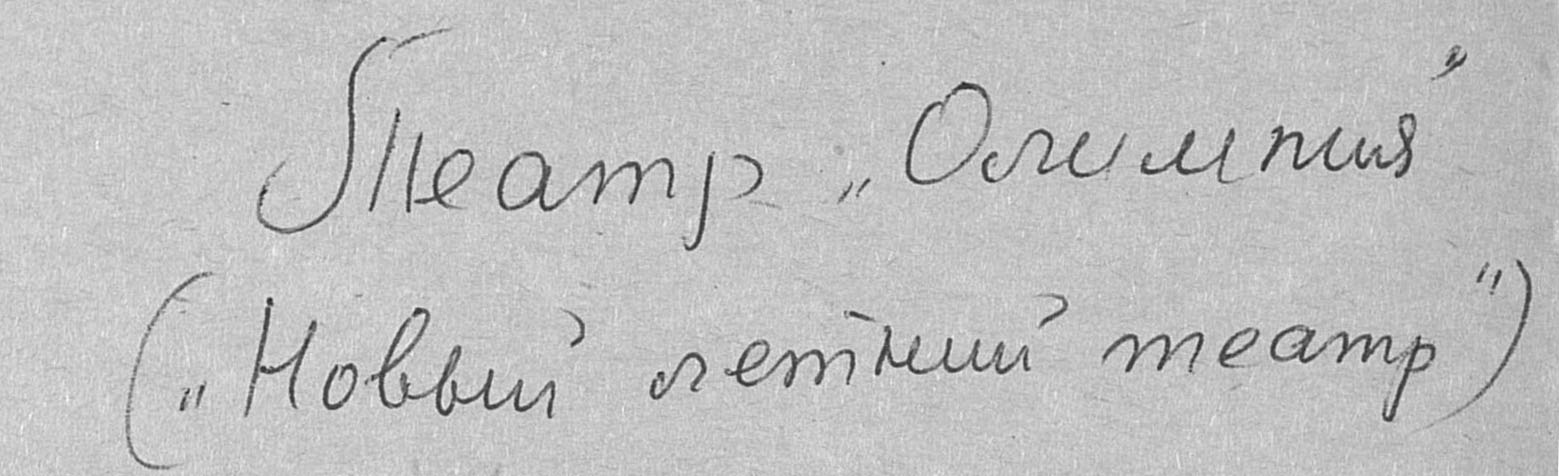 Театр „Олимпия"
(„Новый летний театр")